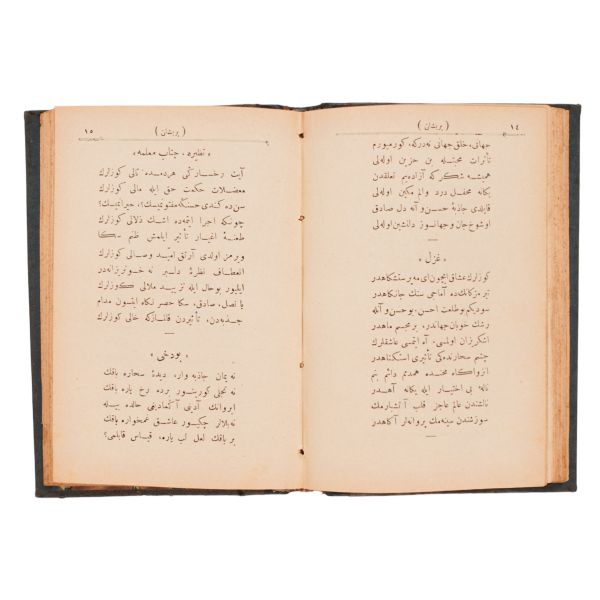 ١٤
( پریشان )
جهانی، خلق جهانی نه‌درکه، کورمیورم
تأثرات محبتله بن حزین اوله‌لی
همیشه شکر که آزاده‌یم تعلقدن
یکانه محفل درد والم مکین اوله‌لی
قاپلدی جاذبهٔ حسن و آنه دل صادق
اوشوخ جان و جهانسوز دلنشین اوله‌لی
« غزل »
کوزلرك عشاق ایچون ای مه پرستشکاهدر
تیر مژکانك ده آماجی سنك جانکاهدر
سودیکم بو طلعت احسن، بو حسن و آنله
رشك خوبان جهاندر، بر مجسم ماهدر
اشکرزان اولمسی، آه ایتمسی عاشقلرك
چشم سحارنده‌کی تأثیری استکناهدر
انزواکاه محنده همدمم دائم بنم
ناله بی اختیار ایله یکانه آهدر
نالشندن عالم عاجز قلب آتشبارمك
سوزشندن سینه‌مك پروانه‌لر آکاهدر
١٥
( پریشان )
« نظیره، جناب معلمه »
آیت رخسارکی هر دمده تالی کوزلرك
معضلات حکمت حق ایله مالی کوزلرك
سن ده کندی حسنکه مفتونمیسك؟ حیرانمیسك؟
چونکه اجرا ایتمده اشك ذلالی کوزلرك
طعنهٔ اغیار تأثیر ایلمش ظنم سکا
ویرمز اولدی آرتق امید وصالی کوزلرك
انعطاف نظرهٔ دلبر نه خونریزانه‌در
ایلیور بو حال ایله تزیید ملالی کوزلرك
یا نصل، صادق، سکا حصر نکاه ایتسون مدام
جذبه‌دن، تأثیردن قالمازکه خالی کوزلرك
« بودخی »
نه یمان جاذبه وار، دیدهٔ سحاره باقك
نه تجلی کورینیور برده رخ یاره باقك
ابروانك آدینی آکمادیغی حالده ییله
نه بلالر چکیور عاشق غمخواره باقك
بر باقك لعل لب یاره، قیاس قابلمی؟